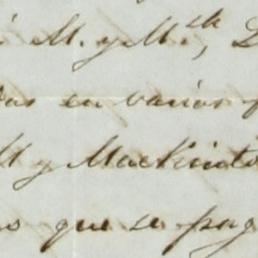 M. y M.ck,
das en varios
M y Mackinto
que se pag